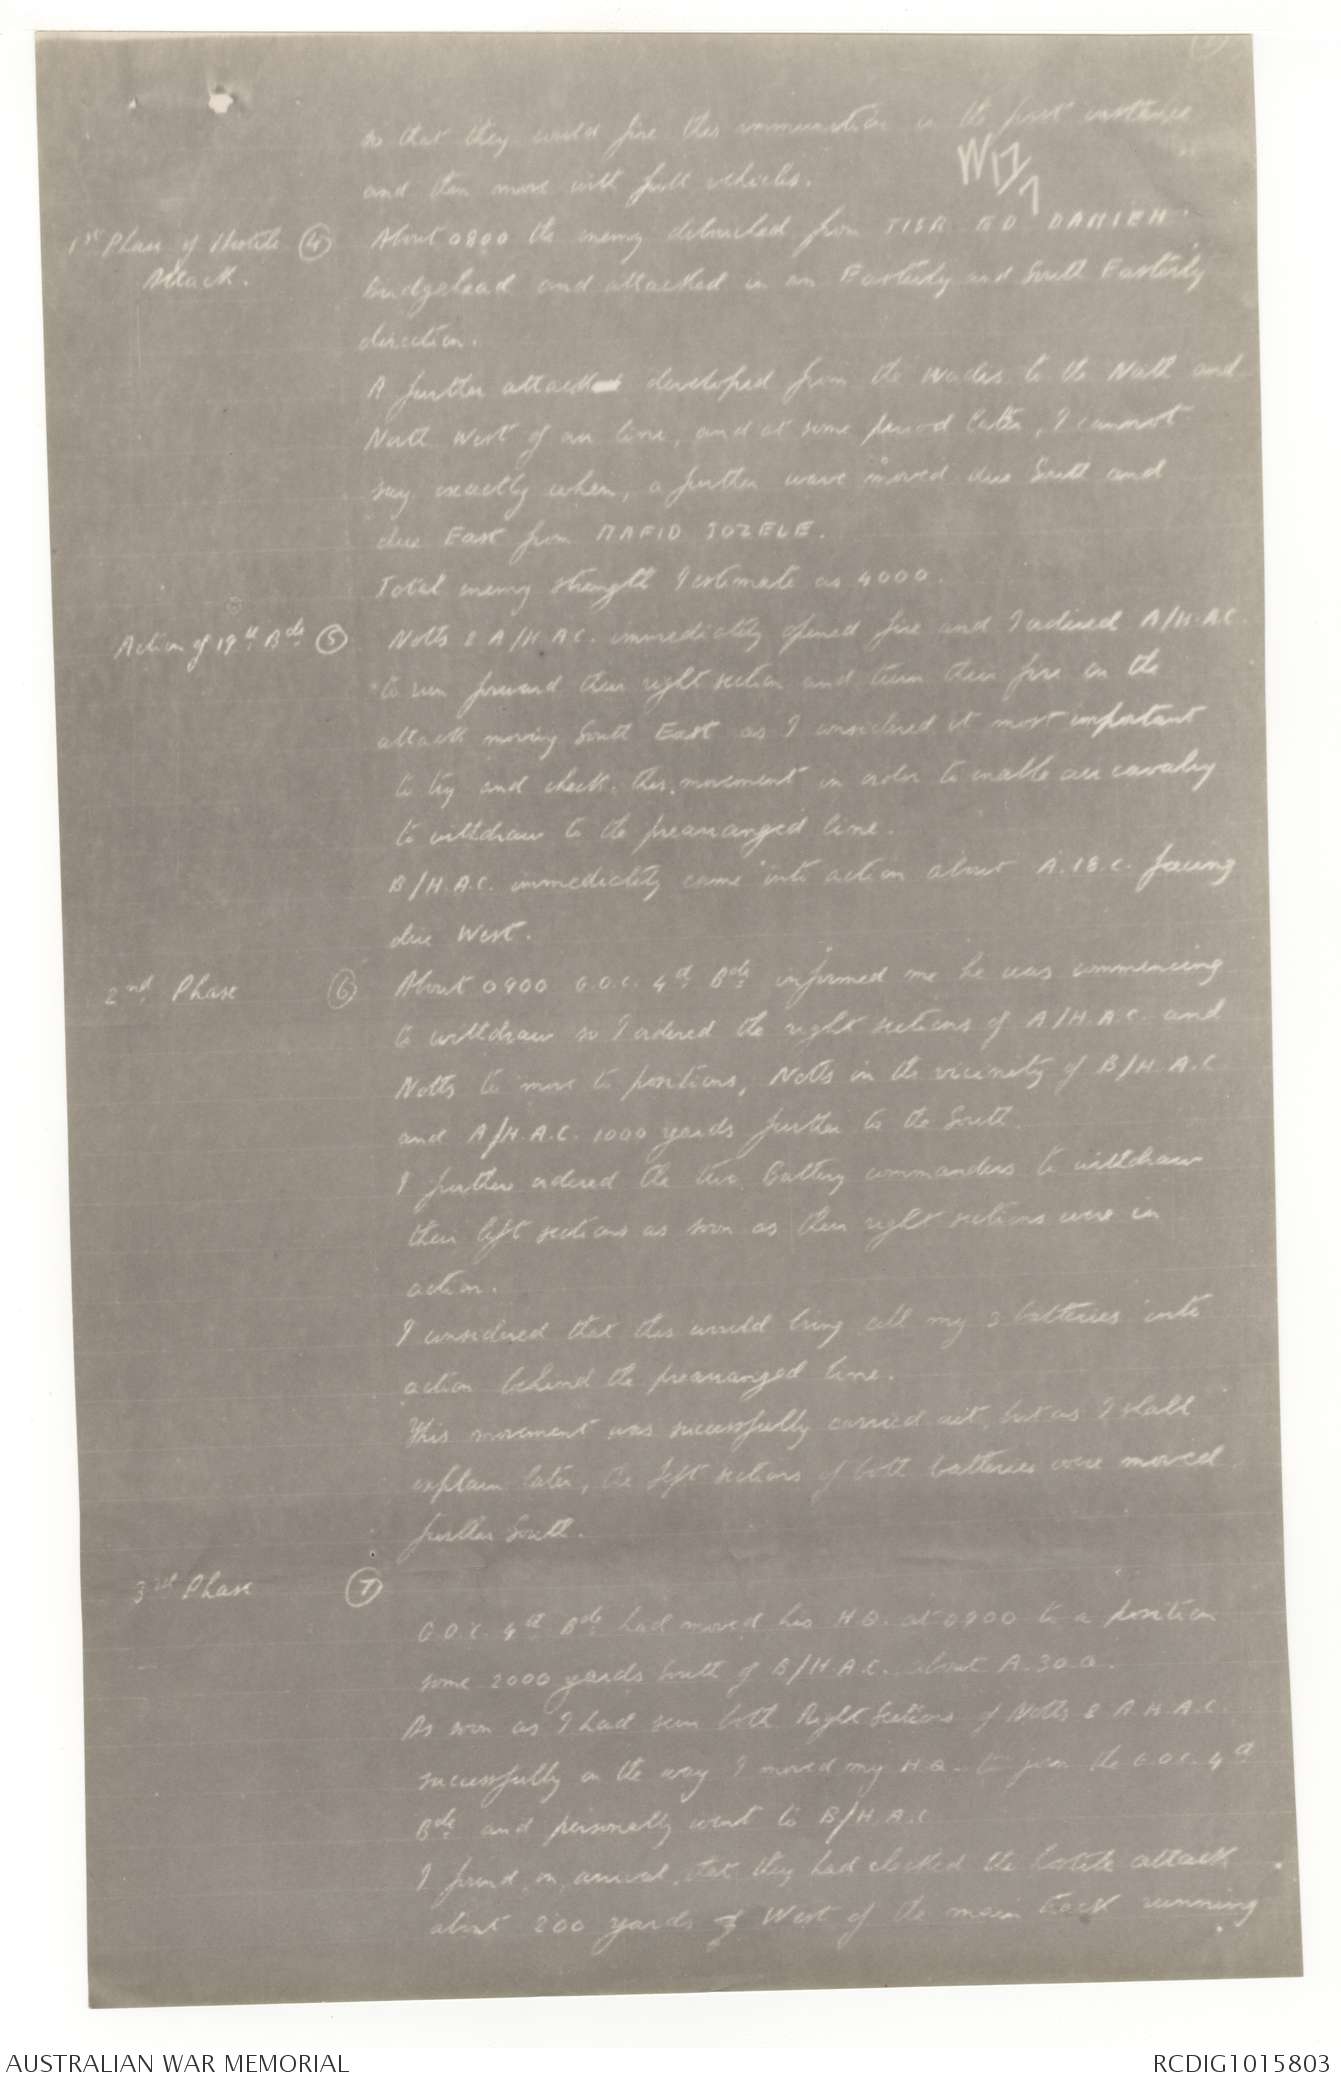 so that they would fire this ammunition in the first instance
and then move with full vehicles.
W17/7
1st Phase of Hostile Attack. (4) About 0800 the enemy debouched from JISR ED DAMIEH
bridgehead and attacked in an Easterly and South Easterly
direction.
A further attack developed from the Wadis to the North and
North West of our line, and at some period later, I cannot
say exactly when, a further wave moved due South and
due East from MAFID JOZELE.
Total enemy strength I estimate as 4000.
Action of 19th Bde. (5) Notts & A/H.A.C. immediately opened fire and I ordered A/H.A.C.
to run forward their right section and turn their fire on the
attack moving South East as I considered it most important
to try and check this movement in order to enable our cavalry
to withdraw to the prearranged line.
B/H.A.C. immediately came into action about A.18.c. facing
due West.
2nd Phase (6) About 0900 G.O.C. 4th Bde. informed me he was commencing
to withdraw so I ordered the right sections of A/H.A.C. and
Notts to move to positions, Notts in the vicinity of B/H.A.C
and A/H.A.C. 1000 yards further to the South.
I further ordered the two Battery commanders to withdraw
their left sections as soon as their right sections were in
action.
I considered that this would bring all my 3 batteries into
action behind the prearranged line.
This movement was successfully carried out, but as I shall
explain later, the left sections of both batteries were moved
further South.
3rd Phase (7)
G.O.C. 4th Bde. had moved his H.Q. at 0900 to a position
some 2000 yards South of B/H.A.C. about A.30.a.
As soon as I had seen both Right Sections of Notts & A.H.A.C.
successfully on the way I moved my H.Q. to join the G.O.C. 4th
Bde. and personally went to B/H.A.C
I found on arrival that they had checked the hostile attack
about 200 yards West of the main track running
AUSTRALIAN WAR MEMORIAL
RCDIG1015803